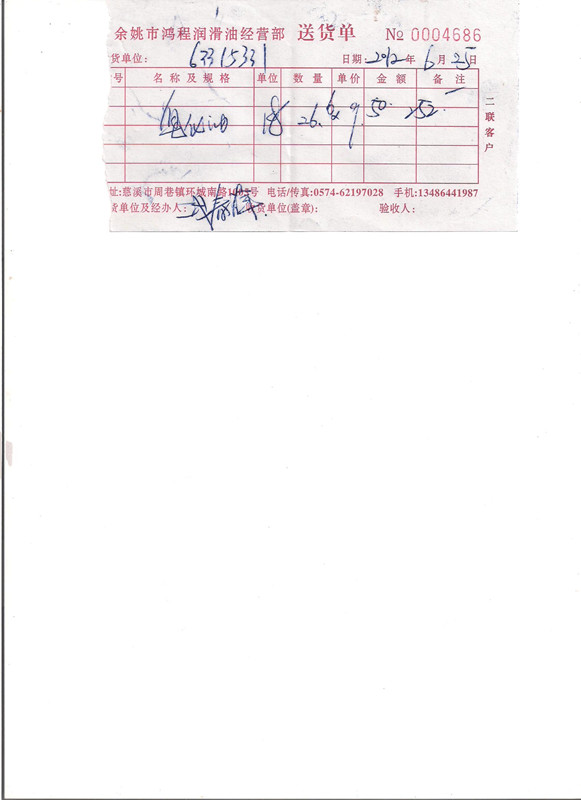 余姚市鸿程润滑油经营部 送货单 № 0004686
货单位: 6331531 日期 2012 年 6 月 25 日
号 名称及规格 单位 数量 单价 金额 备注
油 18 26. 9. 50. 252
址:慈溪市周巷镇环城南路 号 电话/传真:0574-62197028 手机:13486441987
货单位及经办人: 收货单位(盖章): 验收人:
二联客户